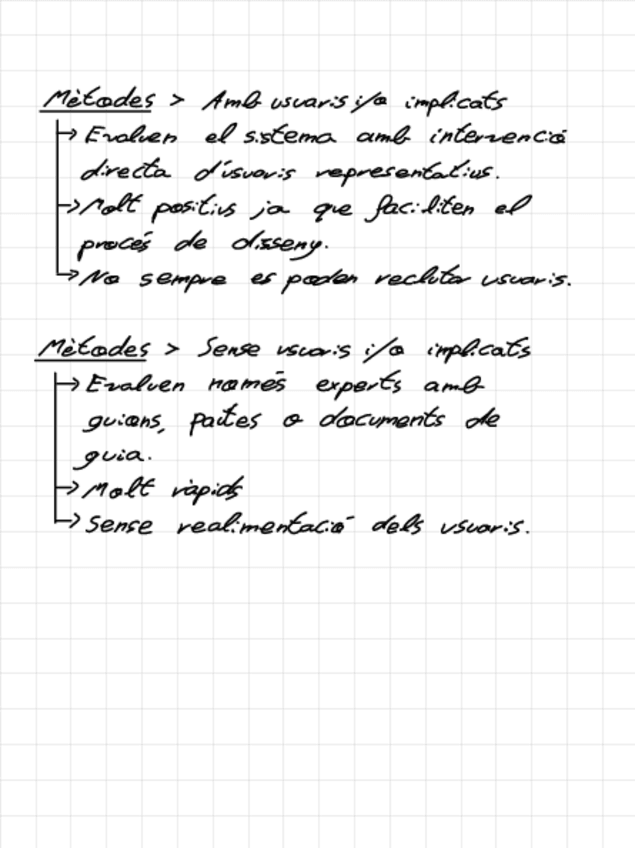 Mètodes > Amb usuaris i/o implicats
→ Evaluen el sistema amb intervenció
directa d'usuaris representatius.
→ Molt positius ja que faciliten el
procés de disseny.
→ No sempre es poden reclutar usuaris.
Mètodes > Sense usuaris i/o implicats
→ Evaluen només experts amb
guions, pautes o documents de
guia.
→ Molt ràpids
→ Sense realimentació dels usuaris.